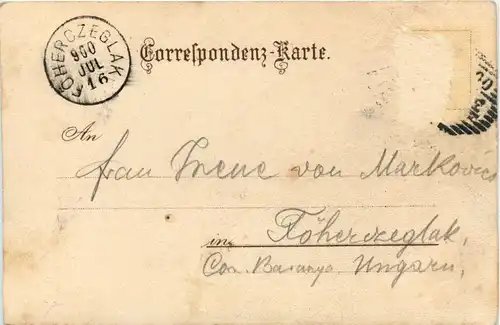 FŐHERCZEGLAK
900
JUL
16
Correspondenz-Karte.
An
Frau Irene von Markovics
in Főherczeglak,
Com. Baranya, Ungarn,